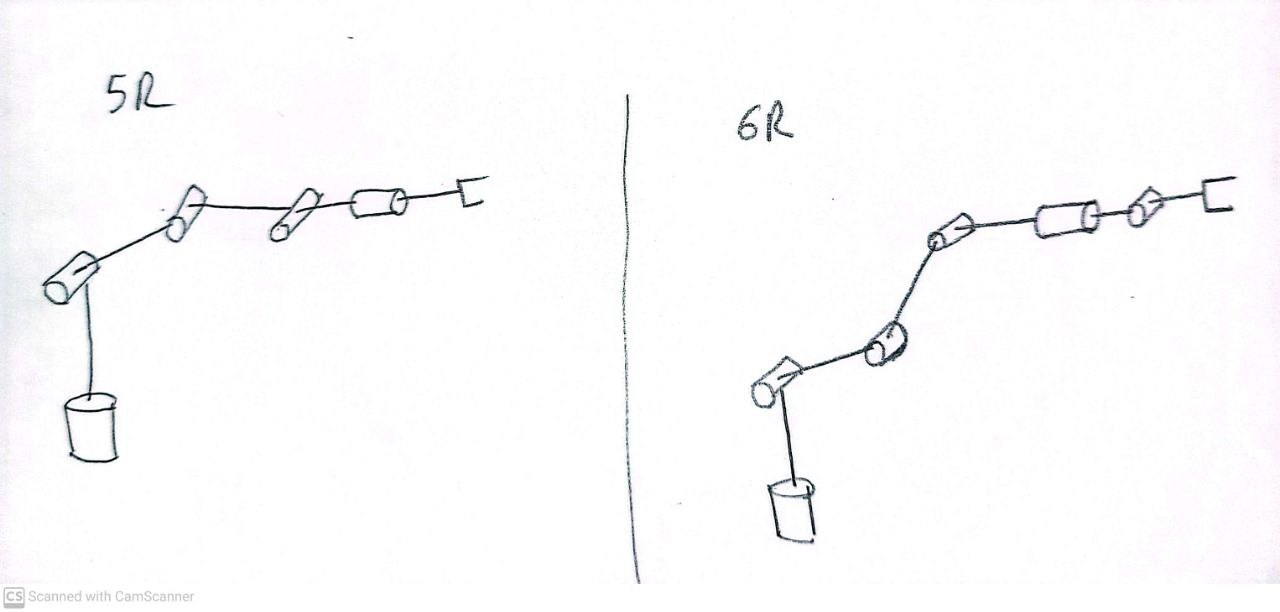 5R
6R
CS Scanned with CamScanner